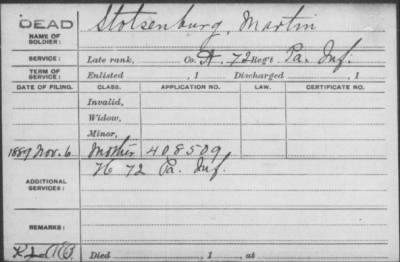 DEAD
NAME OF SOLDIER: Stotsenburg, Martin
SERVICE: Late rank, Co. A, 72 Reg't Pa. Inf.
TERM OF SERVICE: Enlisted , 1 Discharged , 1
DATE OF FILING. CLASS. APPLICATION NO. LAW. CERTIFICATE NO.
Invalid,
Widow,
Minor,
1889 Nov. 6 Mother 408509
ADDITIONAL SERVICES: H 72 Pa. Inf.
REMARKS:
Died , 1 , at